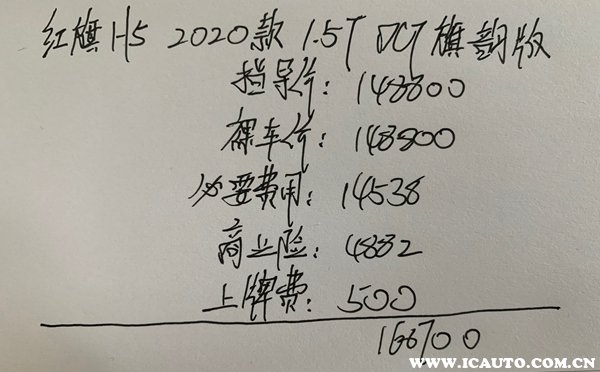 红旗H5 2020款 1.5T DCT 旗韵版
指导价：148800
裸车价：148800
必要费用：14538
商业险：4882
上牌费：500
166700
WWW.ICAUTO.COM.CN